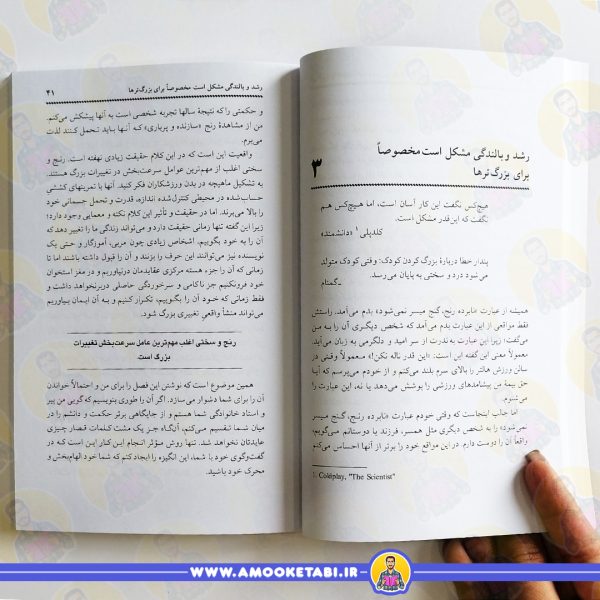 رشد و بالندگی مشکل است مخصوصاً
برای بزرگ‌ترها
۳
هیچ‌کس نگفت این کار آسان است، اما هیچ‌کس هم
نگفت که این‌قدر مشکل است.
کلدپلی۱ «دانشمند»
پندار خطا دربارهٔ بزرگ کردن کودک: وقتی کودک متولد
می‌شود درد و سختی به پایان می‌رسد.
ـ گمنام
همیشه از عبارت «نابرده رنج، گنج میسر نمی‌شود» بدم می‌آمد. راستش
فقط مواقعی از این عبارت بدم می‌آمد که شخص دیگری آن را به من
می‌گفت؛ زیرا این عبارت به ندرت از سر امید و دلگرمی به زبان می‌آید.
معمولاً معنی این گفته این است: «این قدر ناله نکن!» معمولاً وقتی در
سالن ورزش هالتر را بالای سرم بلند می‌کنم و از خودم می‌پرسم که آیا
حق بیمهٔ من پیشامدهای ورزشی را پوشش می‌دهد یا نه، این عبارت را
می‌شنوم.
اما جالب اینجاست که وقتی خودم عبارت «نابرده رنج، گنج میسر
نمی‌شود» را به شخص دیگری مثل همسر، فرزند یا دوستانم می‌گویم،
واقعاً آن را دوست دارم. در این مواقع خود را برتر از آنها احساس می‌کنم
1. Coldplay, "The Scientist"
رشد و بالندگی مشکل است مخصوصاً برای بزرگ‌ترها
۴۱
و حکمتی را که نتیجهٔ سالها تجربه شخصی است به آنها پیشکش می‌کنم.
من از مشاهدهٔ رنج «سازنده و پرباری» که آنها باید تحمل کنند لذت
می‌برم.
واقعیت این است که در این کلام حقیقت زیادی نهفته است. رنج و
سختی اغلب از مهم‌ترین عوامل سرعت‌بخش در تغییرات بزرگ هستند.
به تشکیل ماهیچه در بدن ورزشکاران فکر کنید. آنها با تمرینهای کششی
حساب‌شده در محیطی کنترل شده اندازه، قدرت و تحمل جسمانی خود
را بالا می‌برند. اما در حقیقت و تأثیر این کلام نکته و معمایی وجود دارد؛
زیرا این گفته تنها زمانی حقیقت دارد و می‌تواند زندگی ما را تغییر دهد که
آن را به خود بگوییم. اشخاص زیادی چون مربی، آموزگار و حتی یک
نویسنده نیز می‌توانند این حرف را بزنند و آن را قبول داشته باشند اما تا
زمانی که آن را جزء هسته مرکزی عقایدمان درنیاوریم و در مغز استخوان
خود فرونکنیم جز ناکامی و سرخوردگی حاصلی دربرنخواهد داشت و
فقط زمانی که خود آن را بگوییم، تکرار کنیم و به آن ایمان بیاوریم
می‌تواند منشأ واقعی تغییری بزرگ شود.
رنج و سختی اغلب مهم‌ترین عامل سرعت‌بخش تغییرات
بزرگ است.
همین موضوع است که نوشتن این فصل را برای من و احتمالاً خواندن
آن را برای شما دشوار می‌سازد. اگر آن را طوری بنویسیم که گویی من پیر
و استاد خانوادگی شما هستم و از جایگاهی برتر حکمت و دانشم را در
میان شما تقسیم می‌کنم، آن‌گاه جز یک مشت کلمات قصار چیزی
عایدتان نخواهد شد. تنها روش مؤثر انجام این کار این است که در
گفت‌وگوی خود با شما، این انگیزه را ایجاد کنم که شما خود الهام‌بخش و
محرک خود باشید.
WWW.AMOOKETABI.IR